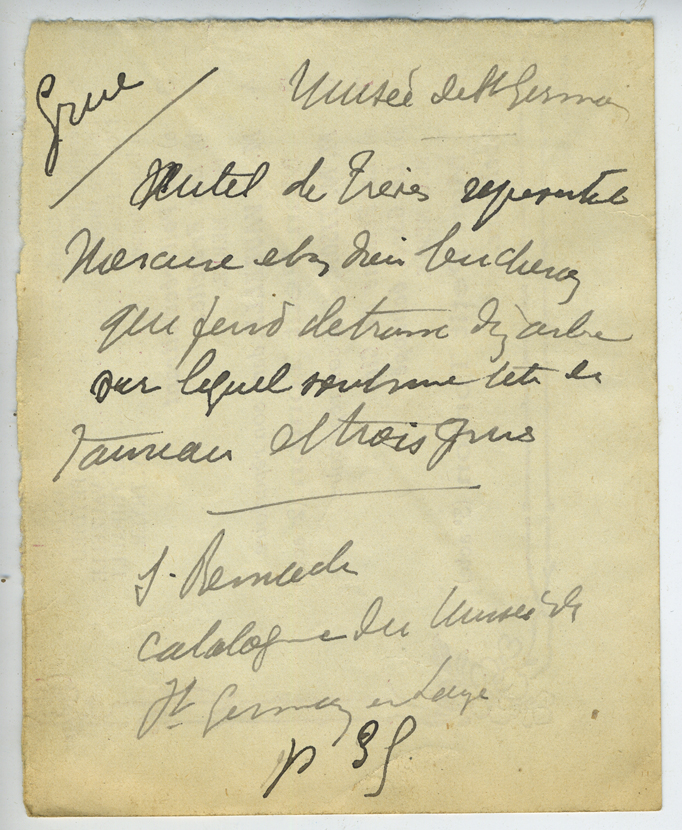 Grue
Musée de St Germain
Autel de Trèves représentant
Mercure et un dieu bucheron
qui fend le tronc d'un arbre
sur lequel sont une tête de
Taureau et trois grues
S. Reinach
catalogue du Musée de
St Germain en Laye
p 35